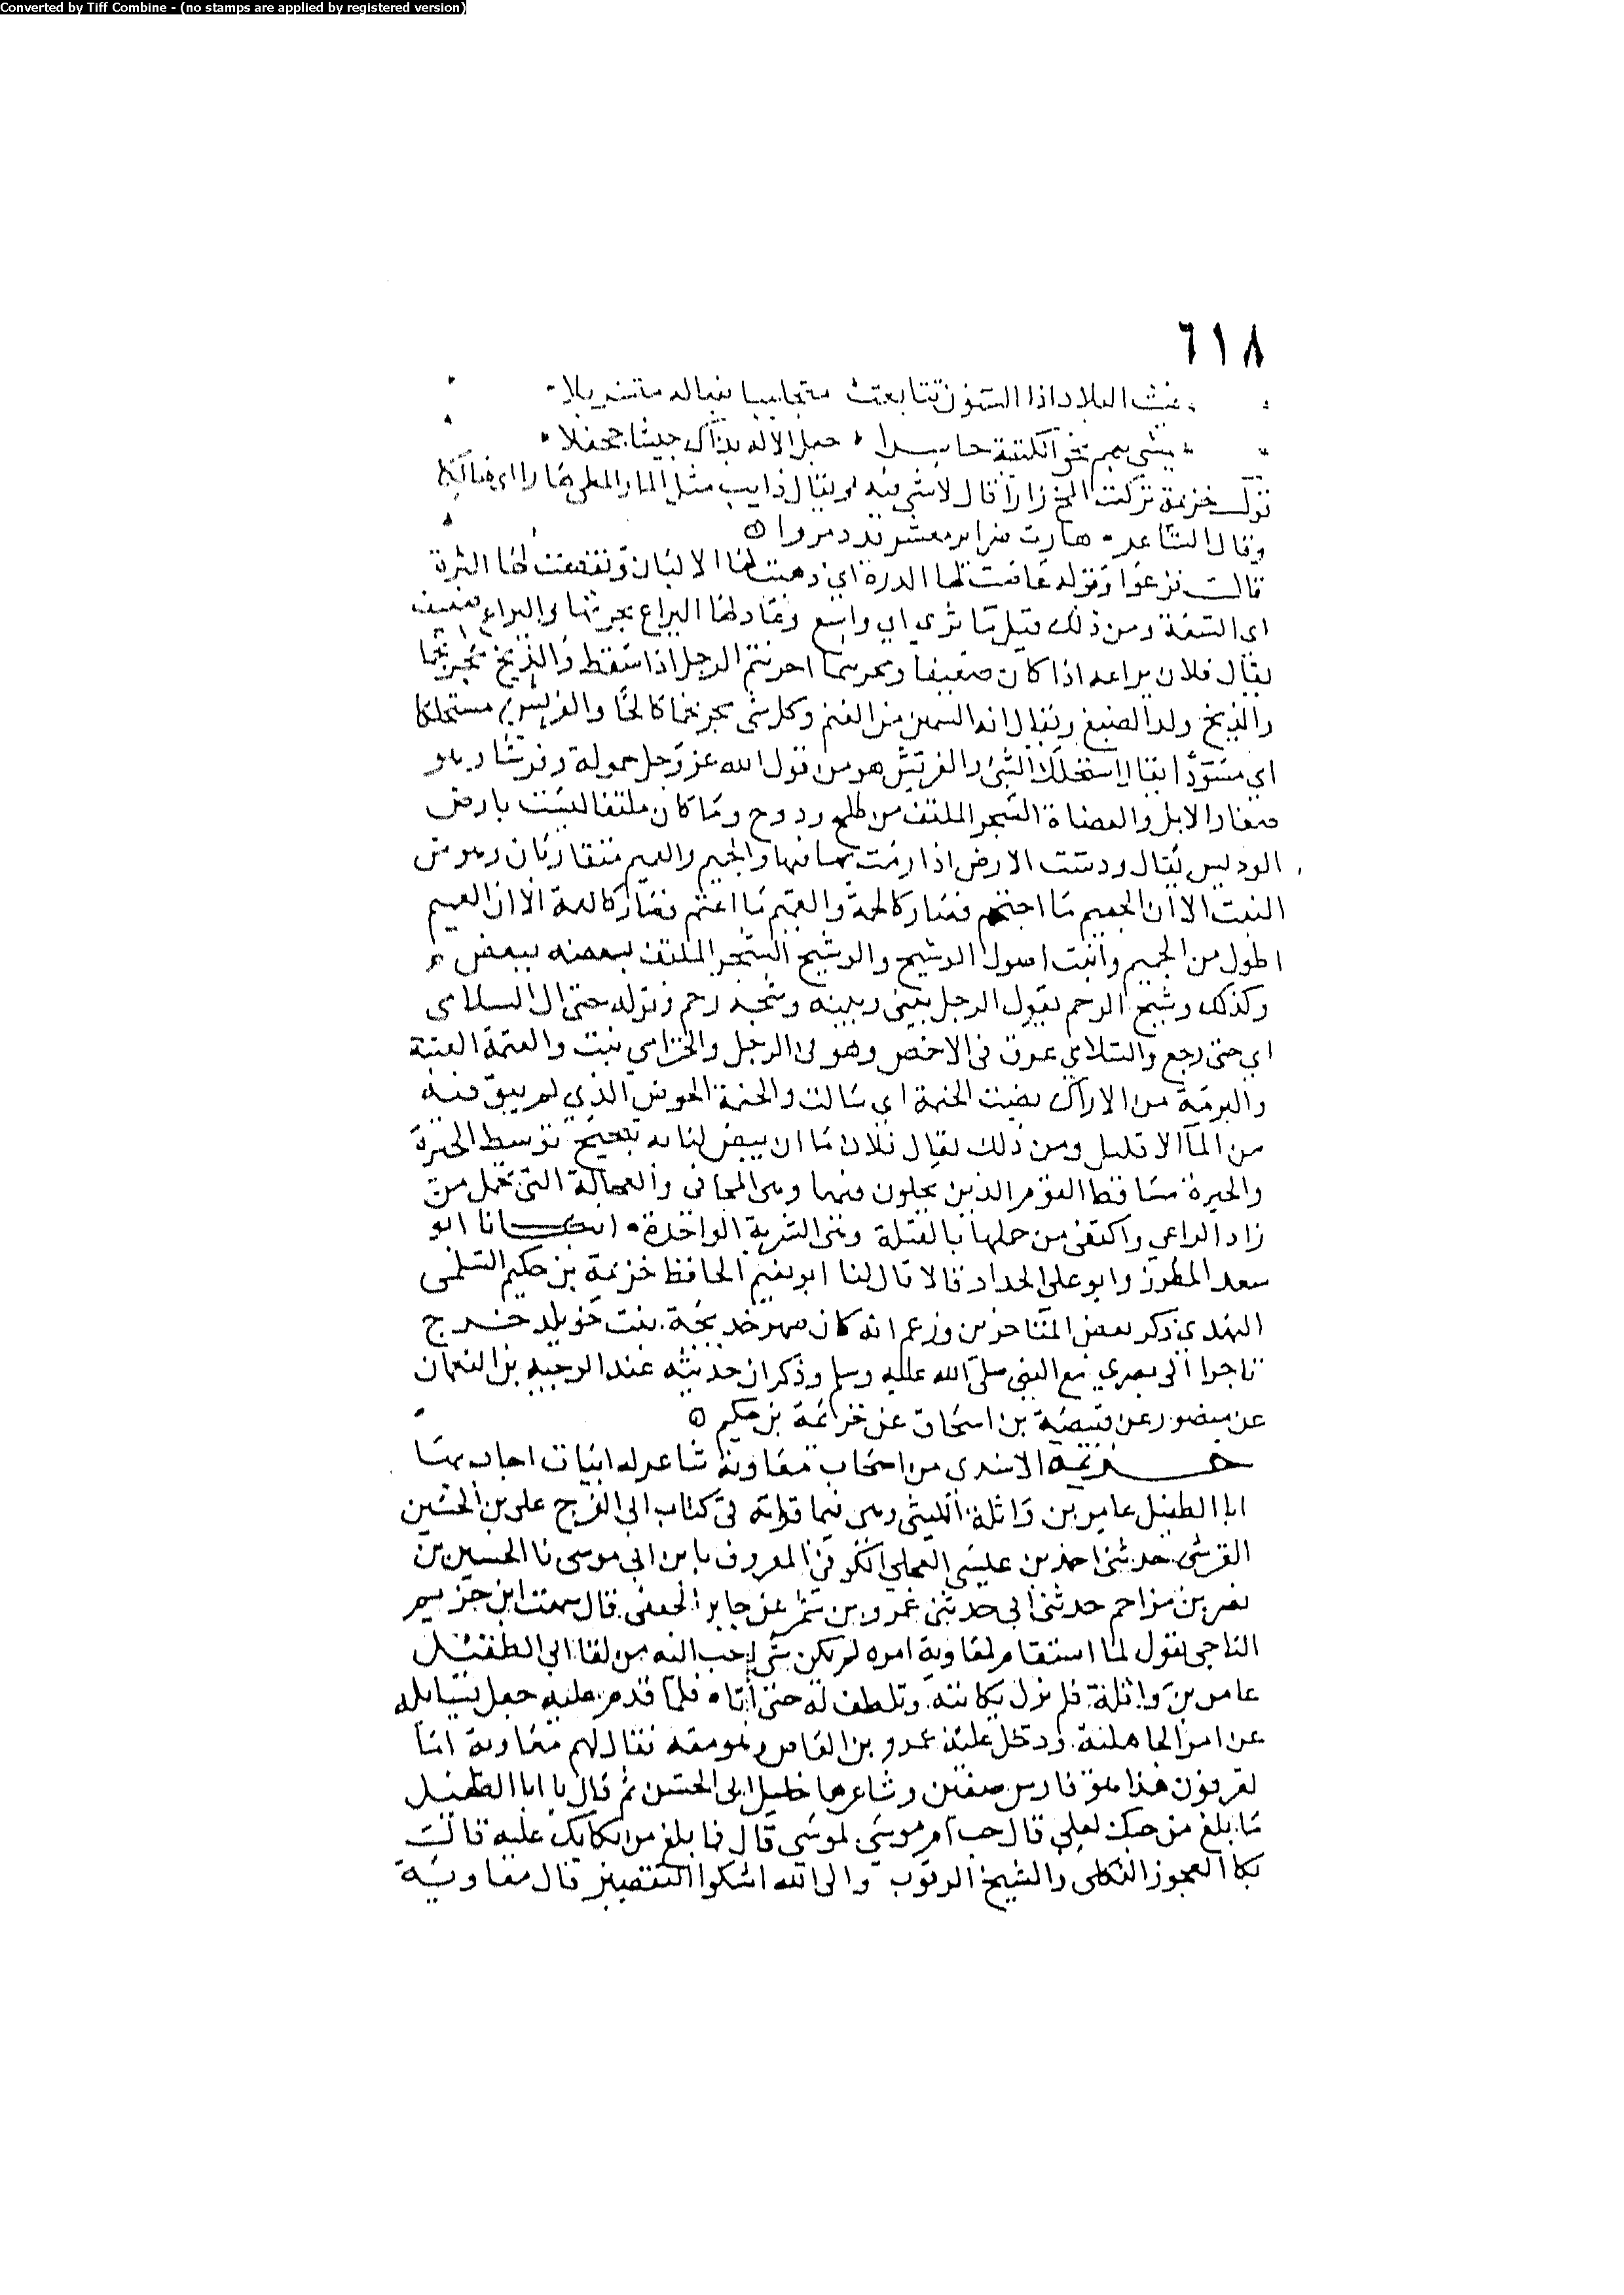 Converted by Tiff Combine - (no stamps are applied by registered version)
٦١٨
غيث البلاد اذا السنون تتابعت متجلببا بفعاله متسربلا
يمشي بهم نحو الكتيبة حاسرا جعل الاله بذاك جيشا جحفلا
خزيمة تركت المخ زارا قال لاشي فيه لم يقال ذايب مثل الما والمطي هارا اي
وقال الشاعر هارت ضراير معشر قد دمروا
قالت وقوله غاضت لها الدرة اي ذهبت لها الالبان ونقصت لها الثرة
اي السعة ومن ذلك قيل ثري اي واسع وعاد لها اليراع مجرنثما واليراع ضعيف
يقال فلان يراعه اذا كان ضعيفا ومجرنثما احرنثم الرجل اذا سقط والذيخ محرنجما
والذيخ ولد الضبع ويقال انه السمين من الغنم وكل شي محرنجما كالحا والفريش مستحلكا
اي مسودا يقال استحلك الشي والفريش هو من قول الله عز وجل حمولة وفرشا وهو
صغار الابل والعضاة الشجر الملتف من طلح ودوح وما كان ملتفا ليست بارض
الوديس يقال ودست الارض اذا رمت بما فيها والجميم والعميم متقاربان وهو من
النبت الا ان الجميم ما اجتم فصار كالجمة والعميم ما اعتم فصار كالعمة الا ان العميم
اطول من الجميم وانبت اصول الوشيج والوشيج الشجر الملتف بعضه ببعض
وكذلك وشيج الرحم يقول الرجل بيني وبينه وشجه رحم وقوله حتى ال السلامى
اي حتى رجع والسلامي عرق في الاخمص وهو في الرجل والخزامي نبت والعتمة العتبة
والبرمة من الاراك بضت الحنمة اي سالت والحنمة الحوض الذي لم يبق فيه
من الما الا قليل ومن ذلك يقال فلان ما ان يبض لبنانه توسط الحيرة
والحيرة مساقط القوم الذين يحلون فيها وهي المجاني والعجالة التي تحمل من
زاد الراعي واكتفى من حملها بالقيلة وهي الشربة الواحدة انبانا ابو
سعد المطرز وابو علي الحداد قالا قال لنا ابو نعيم الحافظ خزيمة بن حكيم السلمى
البهدي ذكر بعض المتاخرين وزعم انه كان صهر خديجة بنت خويلد خرج
تاجرا الى بصري مع النبي صلى الله عليه وسلم وذكر ان حديثه عند الوجيه بن النعمان
عن منصور عن قبيصة بن اسحاق عن خزيمة بن حكيم
خزيمة الاسدى من اصحاب معاوية شاعر له ابيات اجاب بها
ابا الطفيل عامر بن واثلة الليثي وهي فيما قراته في كتاب ابي الفرج على بن الحسين
القرشي حدثني احمد بن عيسى العجلي الكوفي المعروف بابن ابي موسى نا الحسين بن
نصر بن مزاحم حدثني ابي حدثني عمرو بن شمر عن جابر الجعفى قال سمعت ابن حزيم
الناجي يقول لما استقام لمعاوية امره لم يكن شي احب اليه من لقا ابي الطفيل
عامر بن واثلة فلم يزل يكاتبه وتلطف له حتى اتاه فلما قدم عليه جعل يسايله
عن امر الجاهلية ودخل عليه عمرو بن العاص ونفر معه فقال لهم معاوية اما
تعرفون هذا هو فارس صفين وشاعرها خليل ابى الحسن ثم قال يا ابا الطفيل
ما بلغ من حبك لعلي قال حب ام موسى لموسى قال فما بلغ من بكايك عليه قالت
بكا العجوز الثكلى والشيخ الرقوب والى الله اشكوا التقصير قال معاوية